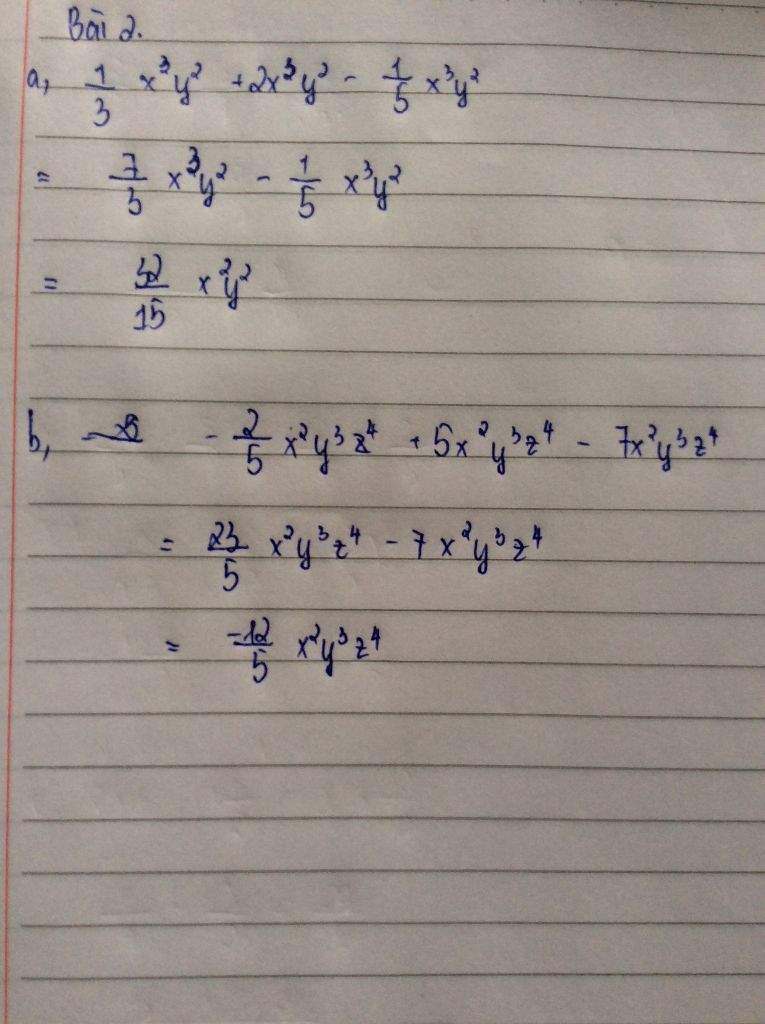 Bài 2.
a, 1/3 x³y² + 2x³y² - 1/5 x³y²
= 7/3 x³y² - 1/5 x³y²
= 32/15 x²y²
b, - 2/5 x²y³z⁴ + 5x²y³z⁴ - 7x²y³z⁴
= 23/5 x²y³z⁴ - 7x²y³z⁴
= -12/5 x²y³z⁴